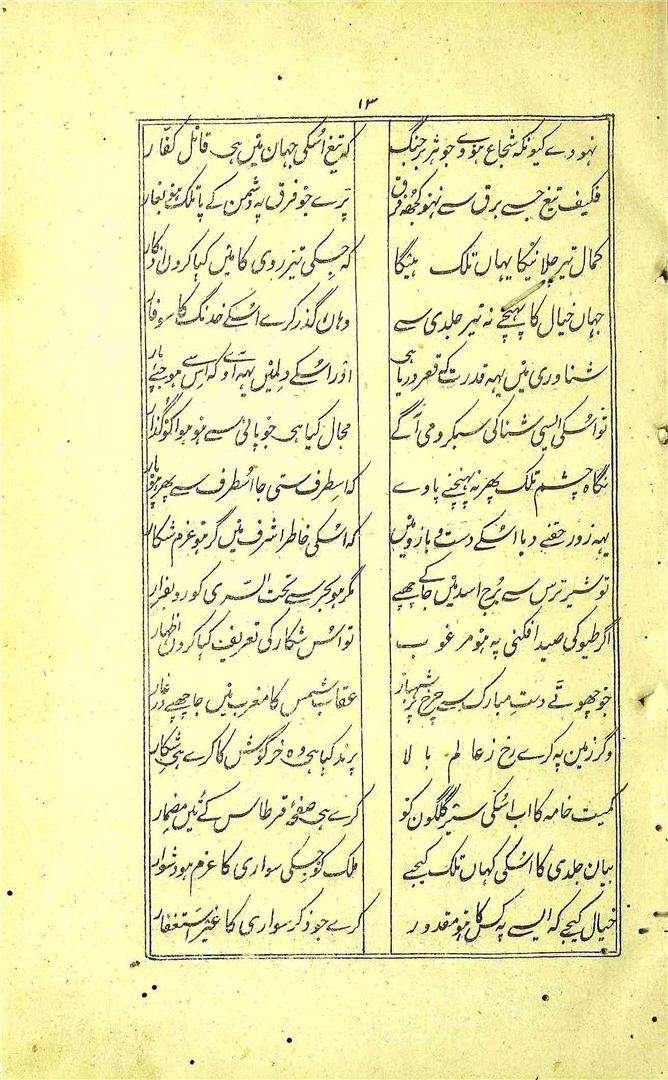 ١٣
نہووے کیونکہ شجاع ہووے جو ہزبر جنگ کہ تیغ اسکی جہان میں ہی قاتل کفار
تیغ جسے برق سے نہو کچھہ فرق پرے جو فرق پہ دشمن کے پا تلک ہو
کمال تیر چلانیکا یہاں تلک ہیگا کہ جسکی تیز روی کا میں کیا کرون اذکار
جہاں خیال کا پہنچے نہ تیر جلدی سے وہان گذر کرے اسکے خدنگ کا سوفار
شناوری میں یہہ قدرت کہ قعر دریا ہی اور اسکے دلمیں یہہ آوے کہ اس سے ہو جیئے پار
تو اسکی ایسی شنا کی سبکروی آگے مجال کیا ہی جو پانی سے ہو ہوا کو گذار
نگاہ چشم تلک پھر نہ پہنچنے پاوے کہ اسطرف ستی جا اسطرف سے پھر ہو پار
یہہ زور حقنے دیا اسکے دست و بازو میں کہ اسکی خاطر اشرف میں گر ہو عزم شکار
تو شیر ترس سے برج اسد میں جا کے چھپے مگر ہو بحر سے تحت الثری کو رو بفرار
اگر طیو کی صید افکنی پہ ہو مرغوب تو اس شکار کی تعریف کیا کرون اظہار
جو چھوٹے دست مبارک سے چرخ پر شہباز عقاب شمس کا مغرب میں جا چھپے در غار
وگر زمین پہ کرے رخ ز عالم بالا پرند کیا ہی وہ خرگوش کا کرے ہی شکار
کمیت خامہ کا اب اسکی سیر گلگون کو کرے ہی صفحۂ قرطاس کے تئیں مضمار
بیان جلدی کا اسکی کہاں تلک کیجے فلک کو جسکی سواری کا عزم ہو دشوار
خیال کیجے کہ ایسے پہ کس کا ہو مقدور کرے جو ذکر سواری کا غیر استغفار